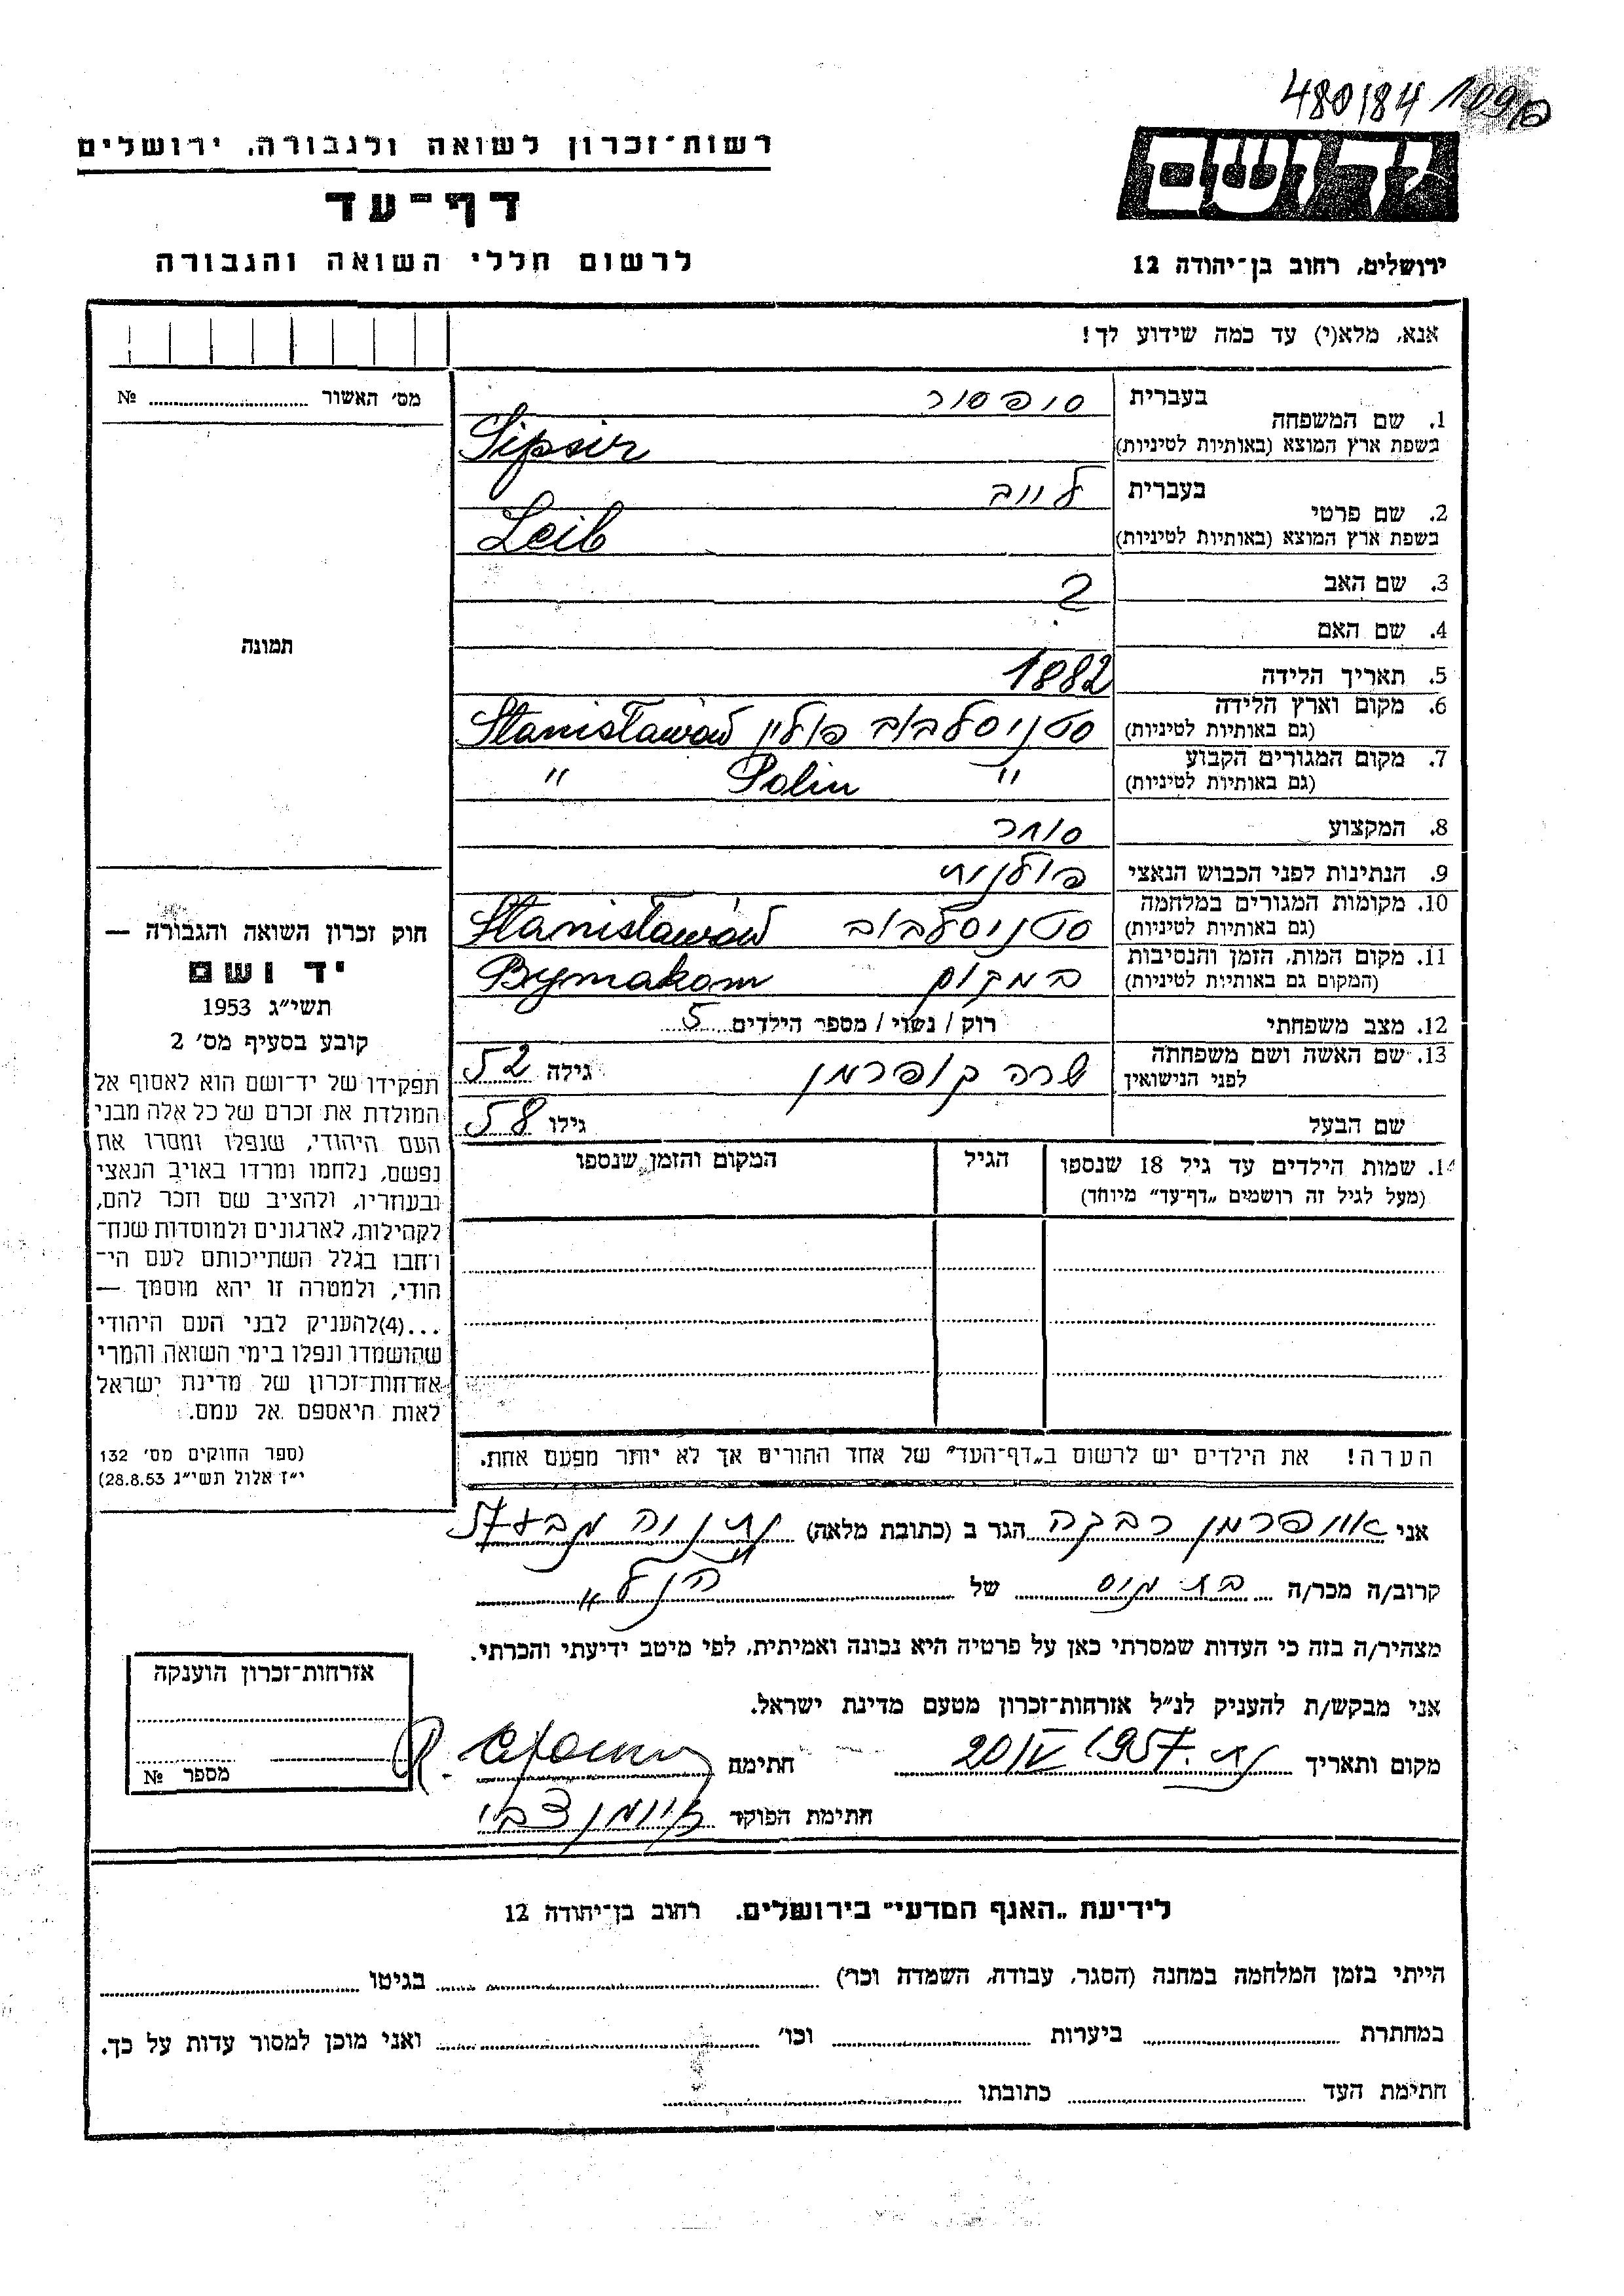 480/84
רשות־זכרון לשואה ולגבורה, ירושלים
דף־עד
לרשום חללי השואה והגבורה
יד ושם
ירושלים, רחוב בן־יהודה 12
אנא, מלא(י) עד כמה שידוע לך!
מס' האשור № 
תמונה
1. שם המשפחה בעברית סיפסור
בשפת ארץ המוצא (באותיות לטיניות) Sipsir
2. שם פרטי בעברית לייב
בשפת ארץ המוצא (באותיות לטיניות) Leib
3. שם האב ?
4. שם האם
5. תאריך הלידה 1882
6. מקום וארץ הלידה (גם באותיות לטיניות) סטניסלבוב פולין Stanisławów
7. מקום המגורים הקבוע (גם באותיות לטיניות) " Polin "
8. המקצוע סוחר
9. הנתינות לפני הכבוש הנאצי פולנית
10. מקומות המגורים במלחמה (גם באותיות לטיניות) סטניסלבוב Stanisławów
11. מקום המות, הזמן והנסיבות (המקום גם באותיות לטיניות) במקום Bymakom
12. מצב משפחתי רוק / נשוי / מספר הילדים 5
13. שם האשה ושם משפחתה לפני הנישואין שרה קופרמן גילה 52
שם הבעל גילו 58
14. שמות הילדים עד גיל 18 שנספו
(מעל לגיל זה רושמים „דף־עד" מיוחד)
הגיל
המקום והזמן שנספו
הערה! את הילדים יש לרשום ב„דף־העד" של אחד ההורים אך לא יותר מפעם אחת.
חוק זכרון השואה והגבורה —
יד ושם
תשי"ג 1953
קובע בסעיף מס' 2
תפקידו של יד־ושם הוא לאסוף אל
המולדת את זכרם של כל אלה מבני
העם היהודי, שנפלו ומסרו את
נפשם, נלחמו ומרדו באויב הנאצי
ובעוזריו, ולהציב שם וזכר להם,
לקהילות, לארגונים ולמוסדות שנח־
רחבו בגלל השתייכותם לעם הי־
הודי, ולמטרה זו יהא מוסמך —
...(4)להעניק לבני העם היהודי
שהושמדו ונפלו בימי השואה והמרי
אזרחות־זכרון של מדינת ישראל
לאות היאספם אל עמם.
(ספר החוקים מס' 132
י"ז אלול תשי"ג 28.8.53)
אני רבקה הגר ב (כתובת מלאה) נתניה
קרוב/ה מכר/ה של הנ"ל
מצהיר/ה בזה כי העדות שמסרתי כאן על פרטיה היא נכונה ואמיתית, לפי מיטב ידיעתי והכרתי.
אני מבקש/ת להעניק לנ"ל אזרחות־זכרון מטעם מדינת ישראל.
מקום ותאריך נת. 20/V 1957 חתימה
חתימת הפוקד צבי
אזרחות־זכרון הוענקה
מספר №
לידיעת „האגף המדעי" בירושלים, רחוב בן־יהודה 12
הייתי בזמן המלחמה במחנה (הסגר, עבודה, השמדה וכו') בגיטו
במחתרת ביערות וכו' ואני מוכן למסור עדות על כך.
חתימת העד כתובתו